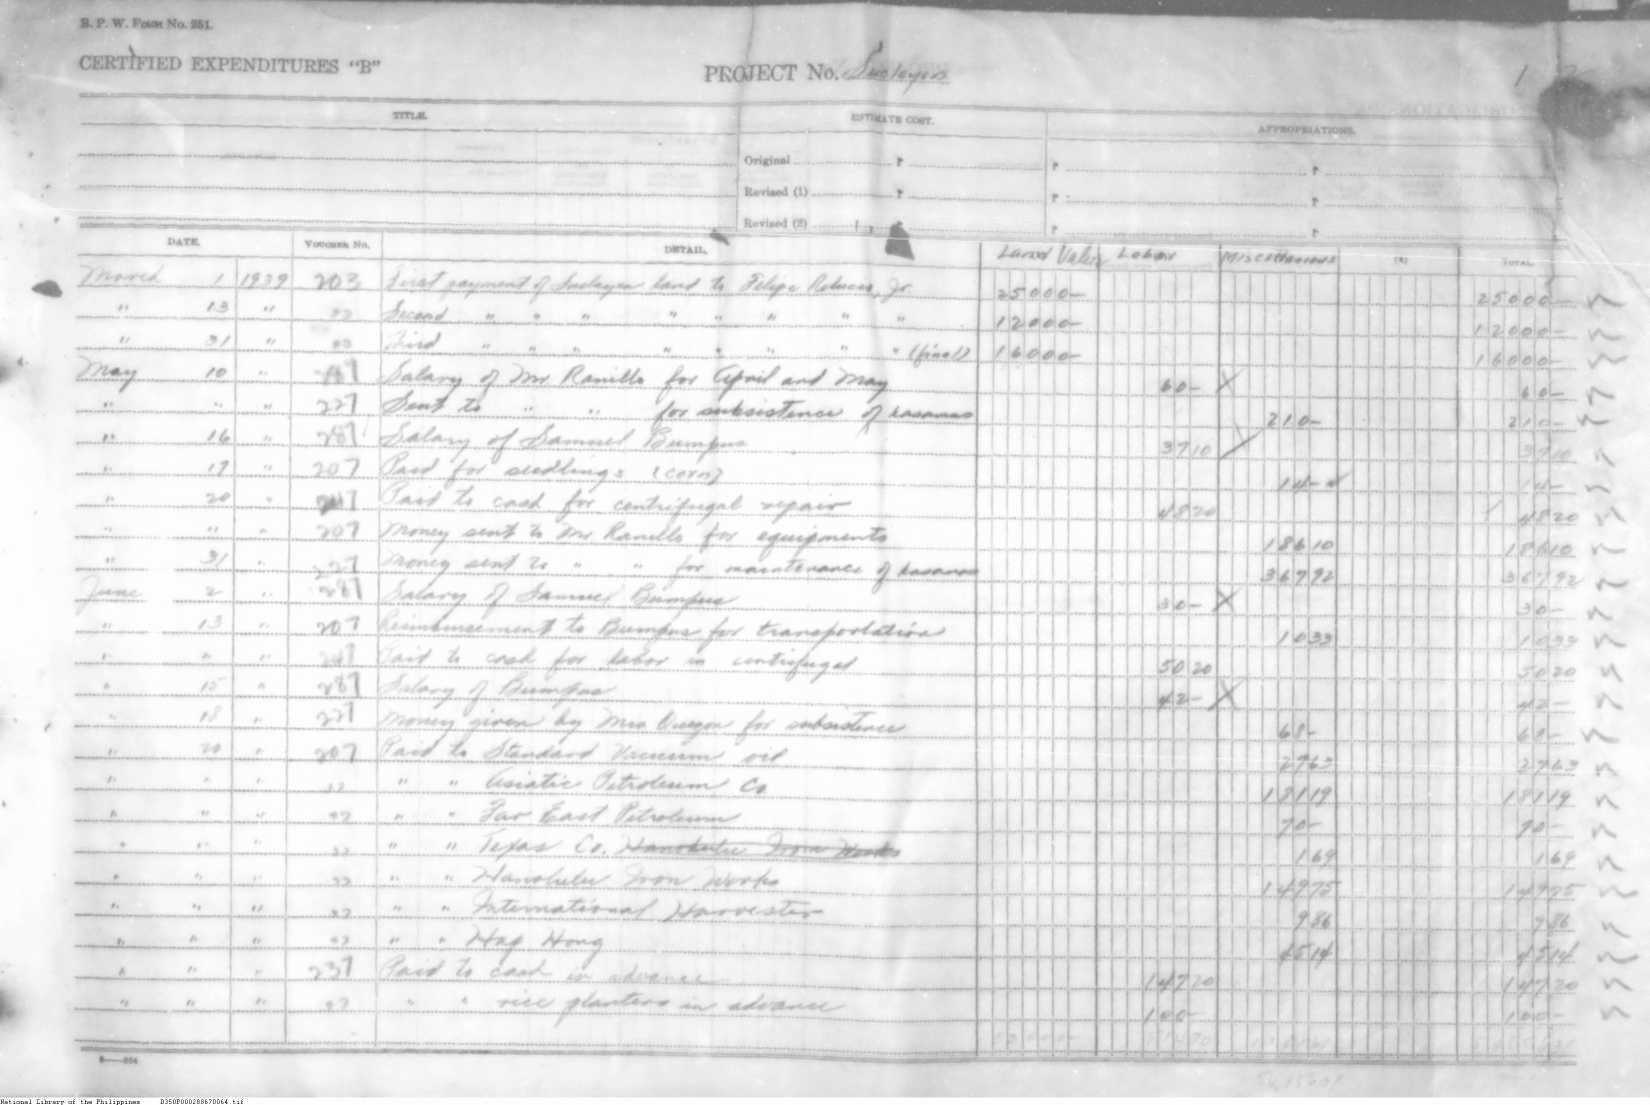 B. P. W. Form No. 251.
CERTIFIED EXPENDITURES "B"
PROJECT No.
1
TITLE.
ESTIMATE COST.
APPROPRIATIONS.
Original ₱ ₱ ₱
Revised (1) ₱ ₱ ₱
Revised (2) ₱ ₱ ₱
DATE. VOUCHER No. DETAIL. Land Value Labor Miscellaneous TOTAL.
March 1 1939 203 First payment of land to Felipe Jr. 25000- 25000-
" 13 " " Second " " " " " " " " 12000- 12000-
" 31 " " Third " " " " " " " " (final) 16000- 16000-
May 10 " Salary of Mr Ranillo for April and May 60- 60-
" " " 227 Sent to " " for subsistence of kasamas 210- 210-
" 16 " 287 Salary of Samuel Bumpus 37 10 37 10
" 17 " 207 Paid for seedlings (corn) 14- 14-
" 20 " Paid to cash for centrifugal repair 48 20 48 20
" " " 207 Money sent to Mr Ranillo for equipments 186 10 186 10
" 31 " 227 Money sent to " " for maintenance of kasamas 367 92 367 92
June 2 " 287 Salary of Samuel Bumpus 30- 30-
" 13 " 207 Reimbursement to Bumpus for transportation 10 33 10 33
" " " Paid to cash for labor in centrifugal 50 20 50 20
" 15 " 287 Salary of Bumpus 42- 42-
" 18 " 227 Money given by Mrs for subsistence 68- 68-
" 20 " 207 Paid to Standard Vacuum oil 27 63 27 63
" " " " " " Asiatic Petroleum Co 181 19 181 19
" " " " " " Far East Petroleum 90-
" " " " " " Texas Co. 1 69 1 69
" " " " " " Iron Works 149 75 149 75
" " " " " " International Harvester 9 86 9 86
" " " " " " Hap Hong 65 14
" " " 237 Paid to cash in advance 147 20 147 20
" " " " " " rice planters in advance 100- 100-
National Library of the Philippines D350P000288670064.tif